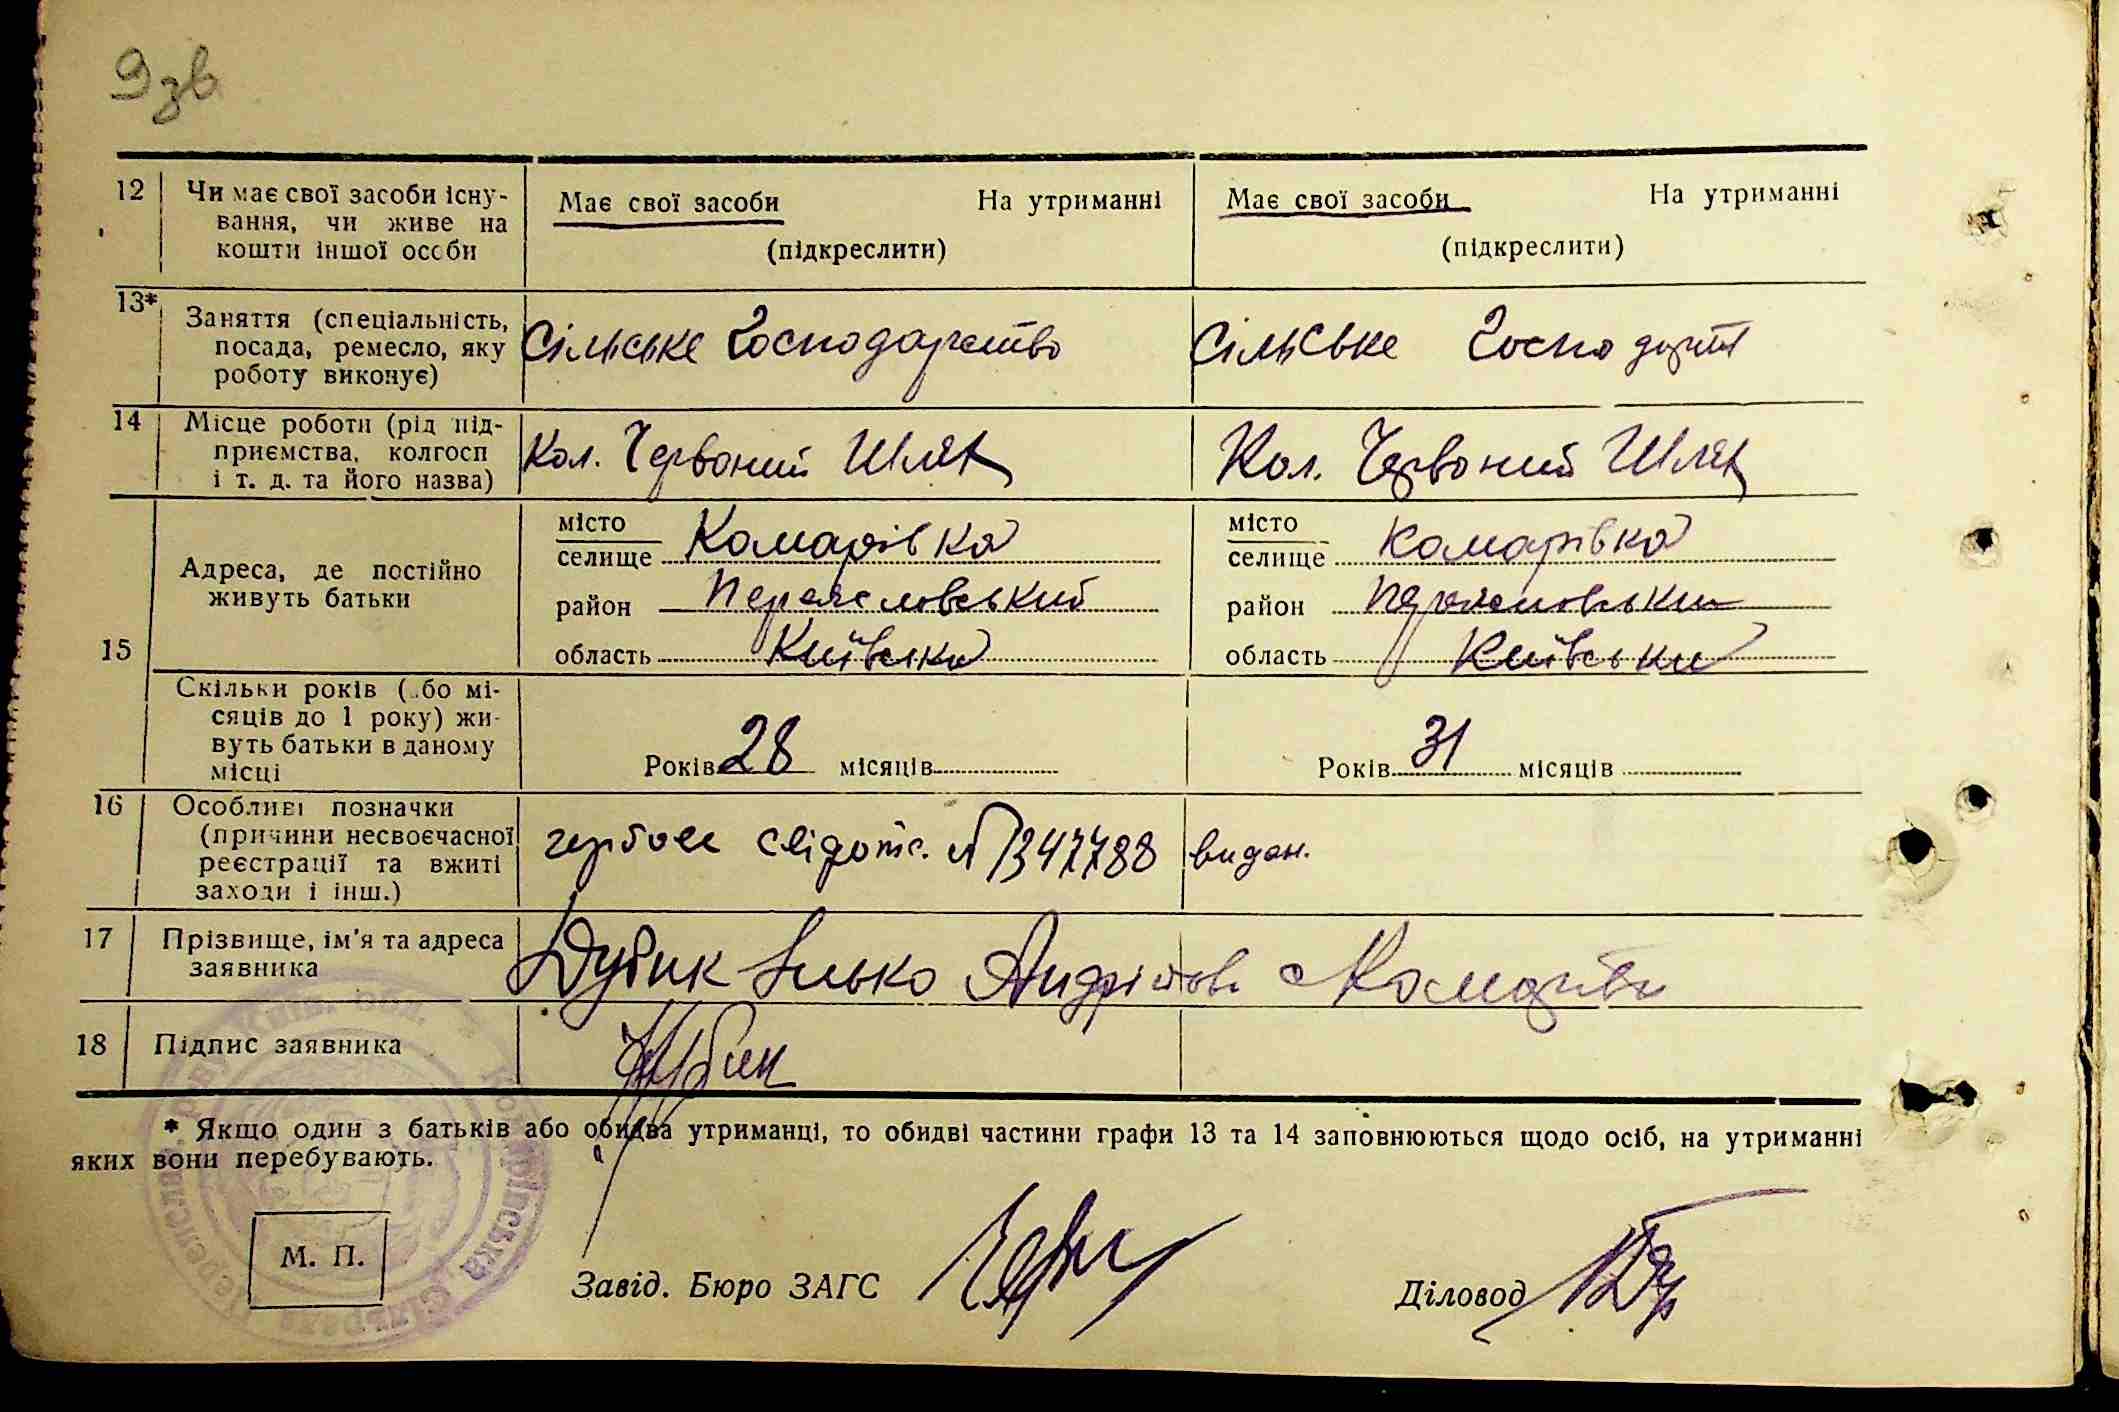 9 зв
12 Чи має свої засоби існу- Має свої засоби На утриманні Має свої засоби На утриманні
вання, чи живе на (підкреслити) (підкреслити)
кошти іншої особи
13* Заняття (спеціальність, Сільське Господарство Сільське Господарст
посада, ремесло, яку
роботу виконує)
14 Місце роботи (рід під- Кол. Червоний Шлях Кол. Червоний Шлях
приємства, колгосп
і т. д. та його назва)
15 Адреса, де постійно
живуть батьки
місто місто
селище Комарівка селище Комарівка
район Переясловський район Переясловський
область Київська область Київська
Скільки років (або мі-
сяців до 1 року) жи-
вуть батьки в даному
місці
Років 28 місяців Років 31 місяців
16 Особливі позначки
(причини несвоєчасної гербове свідотс. № 347788 видан.
реєстрації та вжиті
заходи і інш.)
17 Прізвище, ім'я та адреса Дубик Ілько с Комарівка
заявника
18 Підпис заявника Дубик
* Якщо один з батьків або обидва утриманці, то обидві частини графи 13 та 14 заповнюються щодо осіб, на утриманні
яких вони перебувають.
М. П.
Завід. Бюро ЗАГС Діловод